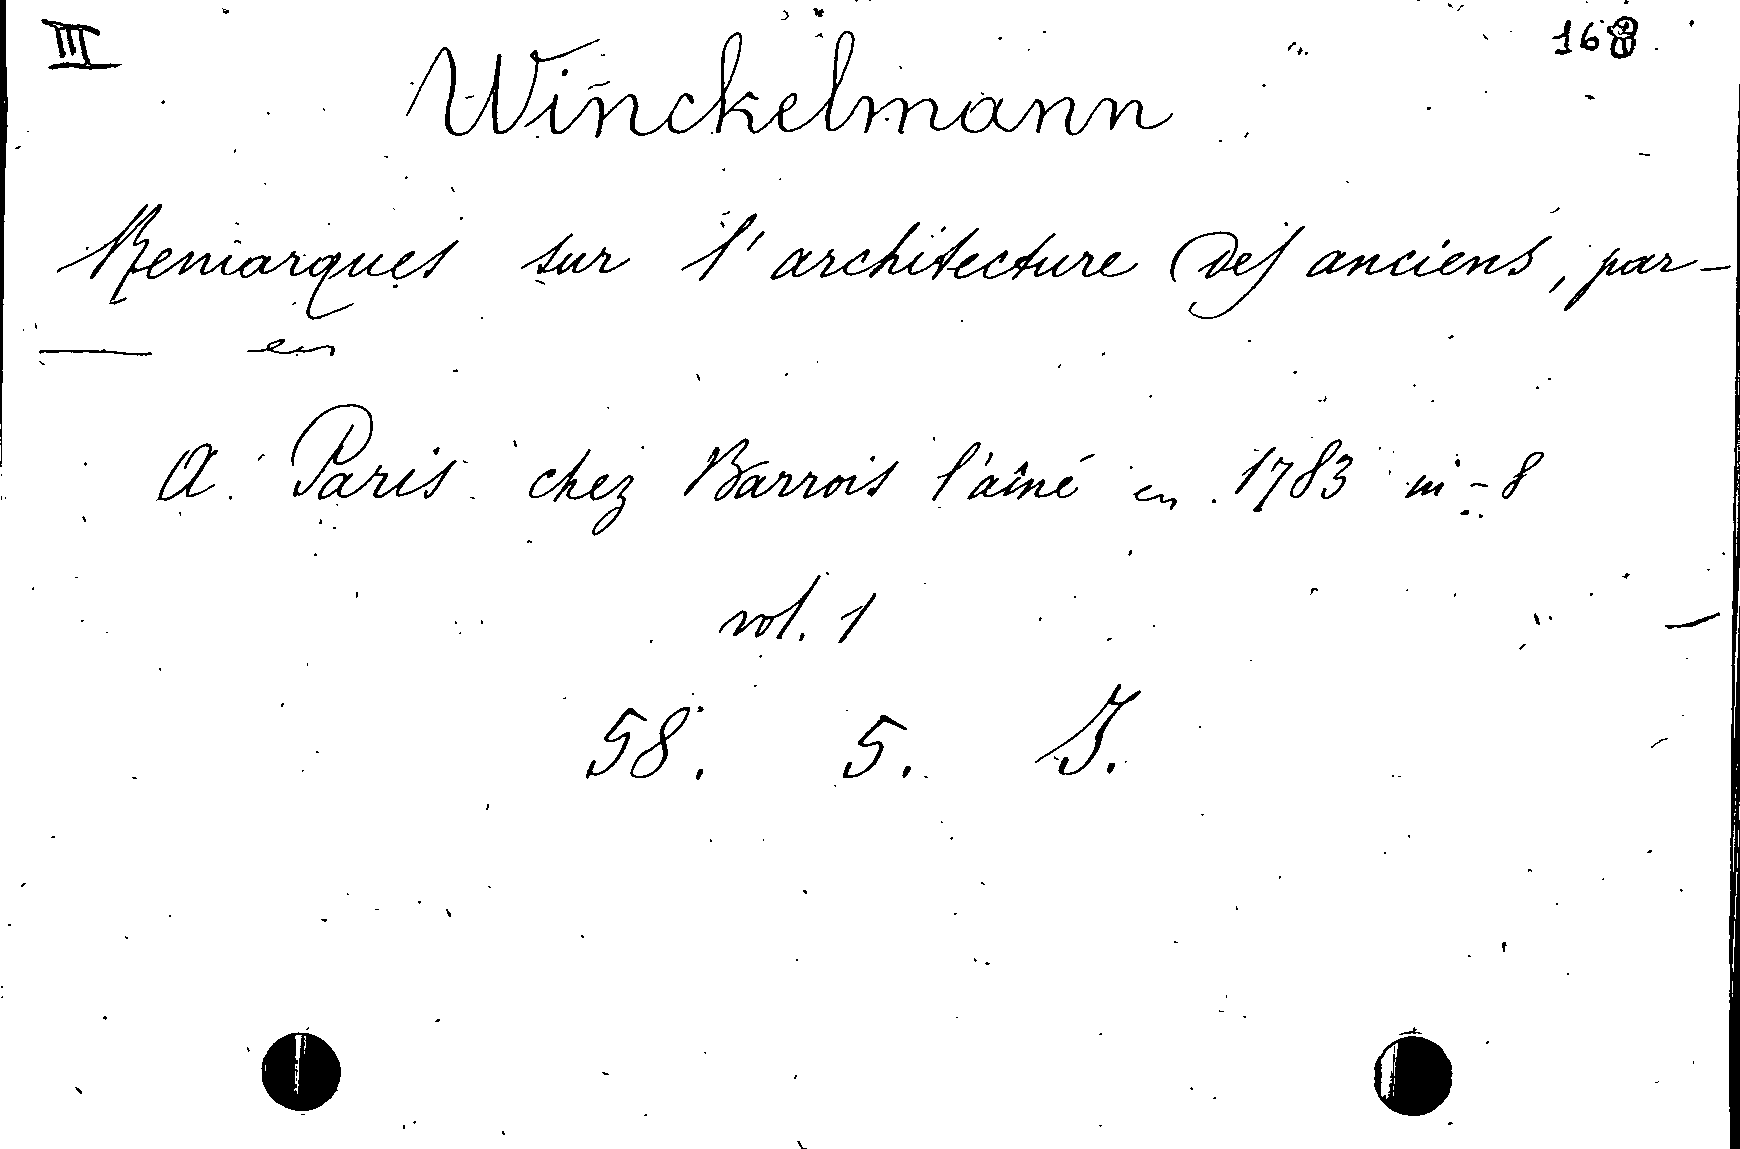 III
Winckelmann
Remarques sur l'architecture des anciens, par —
— en
A Paris chez Barrois l'aîné en 1783 in-8
vol. 1
58. 5. J.